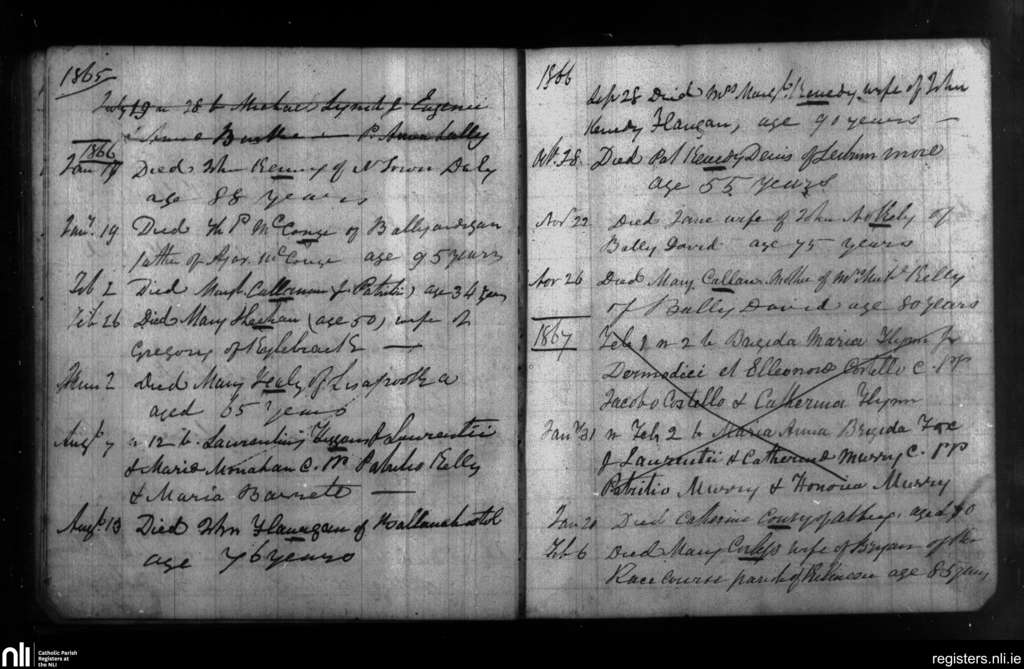 1865
July 19 n 28 b Michael Lynch f Eugenii
& Anna Burke P. Anna Lally
1866
Jan 17 Died John Kenny of N Town Daly
age 88 years
Jany. 19 Died Th P McConge of Ballyardigan
father of McConge age 95 years
Feb 2 Died Margt. f Patritii, age 34 years
Feb 26 Died Mary Sheehan (age 50) wife of
Gregory of
June 2 Died Mary Healy of
aged 65 years
Augt. 7 n 12 b. Laurentius f Laurentii
& Maria Monahan C. PP Patritio Kelly
& Maria Barnett
Augt. 13 Died John Flanagan of
age 76 years
1866
Sep 28 Died Mrs Margt. Kennedy wife of John
Kenedy age 90 years
Oct. 28. Died Pat Kenedy Denis of more
age 55 years
Nov 22 Died Jane wife of John of
Bally David age 75 years
Nov 26 Died Mary Callan Mother of Kelly
of Bally David age 80 years
1867 Feb 1 n 2 b Brigida Maria Flynn f
Dermodici et Elleonora Costello C. PP
Jacobo Costello & Catherina Flynn
Jany 31 n Feb 2 b Maria Anna Brigida Fox
f Laurentii & Catherina Murry C. PP
Patritio Murry & Honoria Murry
Jan 20 Died Catherine of aged
Feb 6 Died Mary wife of Bryan of the
Race Course parish of age 85 years
nli
Catholic Parish
Registers at
the NLI
registers.nli.ie